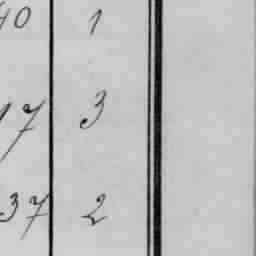 40 1
17 3
37 2